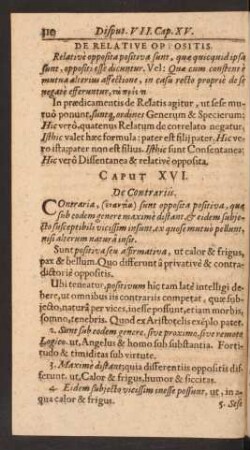 310 Disput. VII. Cap. XV.
DE RELATIVE OPPOSITIS.
Relativè opposita positiva sunt, quæ quicquid ipsa
sunt, oppositi esse dicuntur. Vel: Quæ cum consentiant
mutua alterius affectione, in casu recto propriè de se
negatè efferuntur,
In prædicamentis de Relatis agitur, ut sese mutuò
ponunt, suntq, ordines Generum & Specierum;
Hîc verò, quatenus Relatum de correlato negatur,
Isthic valet hæc formula: pater est filii pater. Hîc verò
ista: pater non est filius. Isthic sunt Consentanea;
Hîc verò Dissentanea & relativè opposita.
CAPUT XVI.
De Contrariis.
Contraria, (ἐναντία) sunt opposita positiva, quæ
sub eodem genere maximè distant, & eidem subjecto
susceptibili vicissim insunt, ex quo se mutuò pellunt,
nisi alterum naturâ insit.
Sunt positiva seu affirmativa, ut calor & frigus,
pax & bellum. Quo differunt à privativè & contradictoriè
oppositis.
Ubi teneatur, positivum hîc tam latè intelligi debere,
ut omnibus iis contrariis competat, quæ subjecto,
naturâ per vices, inesse possunt, etiam morbis,
somno, tenebris. Quod ex Aristotelis exẽplo patet.
2. Sunt sub eodem genere, sive proximo, sive remote
Logico. ut, Angelus & homo sub substantia. Fortitudo
& timiditas sub virtute.
3. Maximè distant; quia differentiis oppositis differunt.
ut, Calor & frigus, humor & siccitas.
4. Eidem subjecto vicissim inesse possunt, ut, in aqua
calor & frigus. 5. Sese